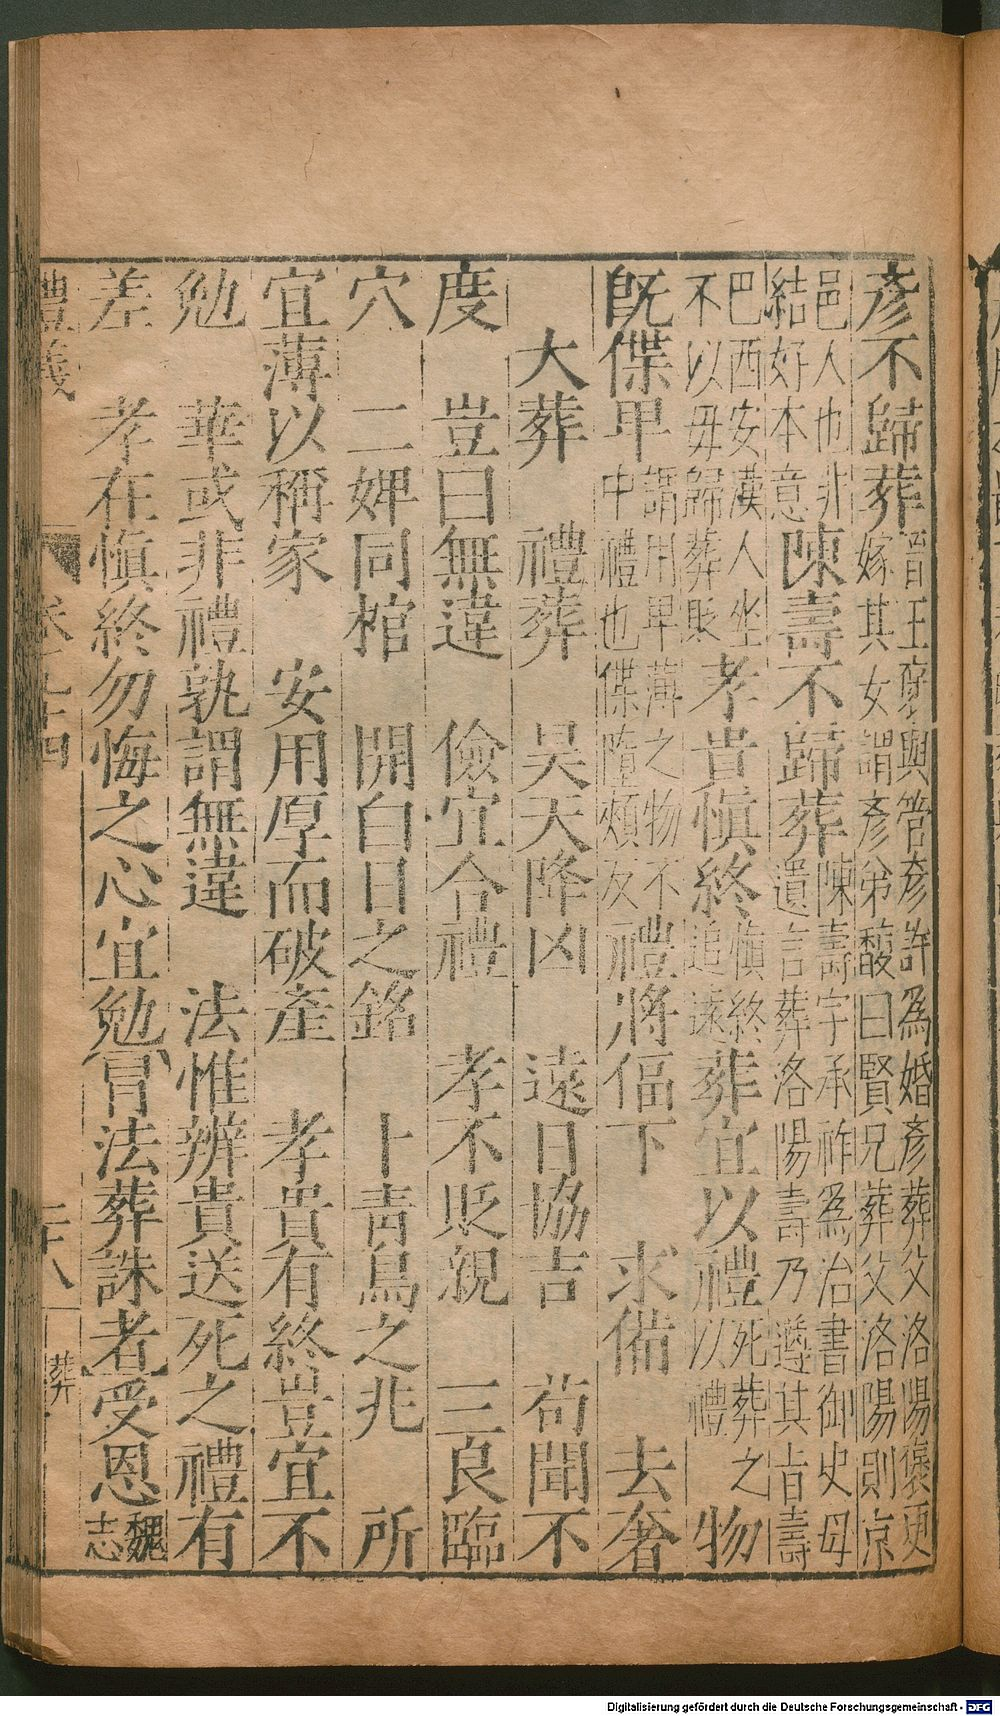 彥不歸葬晉王裒與管彥許爲婚彥葬父洛陽裒更
嫁其女謂彥弟馥曰賢兄葬父洛陽則京
邑人也非
結好本意陳壽不歸葬陳壽字承祚爲治書御史母
遺言葬洛陽壽乃遵其旨壽
巴西安漢人坐
不以毋歸葬貶孝貴愼終愼終
追遠葬宜以禮死葬之
以禮物
旣僷卑謂用卑薄之物不
中禮也僷墮頰反禮將偪下 求備 去奢
大葬 禮葬 吴天降凶 遠日協吉 苟聞不
度 豈曰無違 儉宜合禮 孝不貶親 三良臨
穴 二婢同棺 開白日之銘 卜靑烏之兆 所
宜薄以稱家 安用厚而破產 孝貴有終豈宜不
勉 華或非禮孰謂無違 法惟辨貴送死之禮有
差 孝在愼終勿悔之心宜勉冐法葬誅者受恩魏
志
禮義 卷五十四 二十八 葬
Digitalisierung gefördert durch die Deutsche Forschungsgemeinschaft - DFG